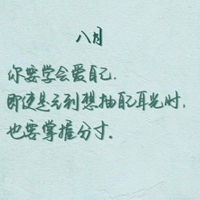 八月
你要学会爱自己.
即使是无到想抽自己耳光时,
也要掌握分寸.